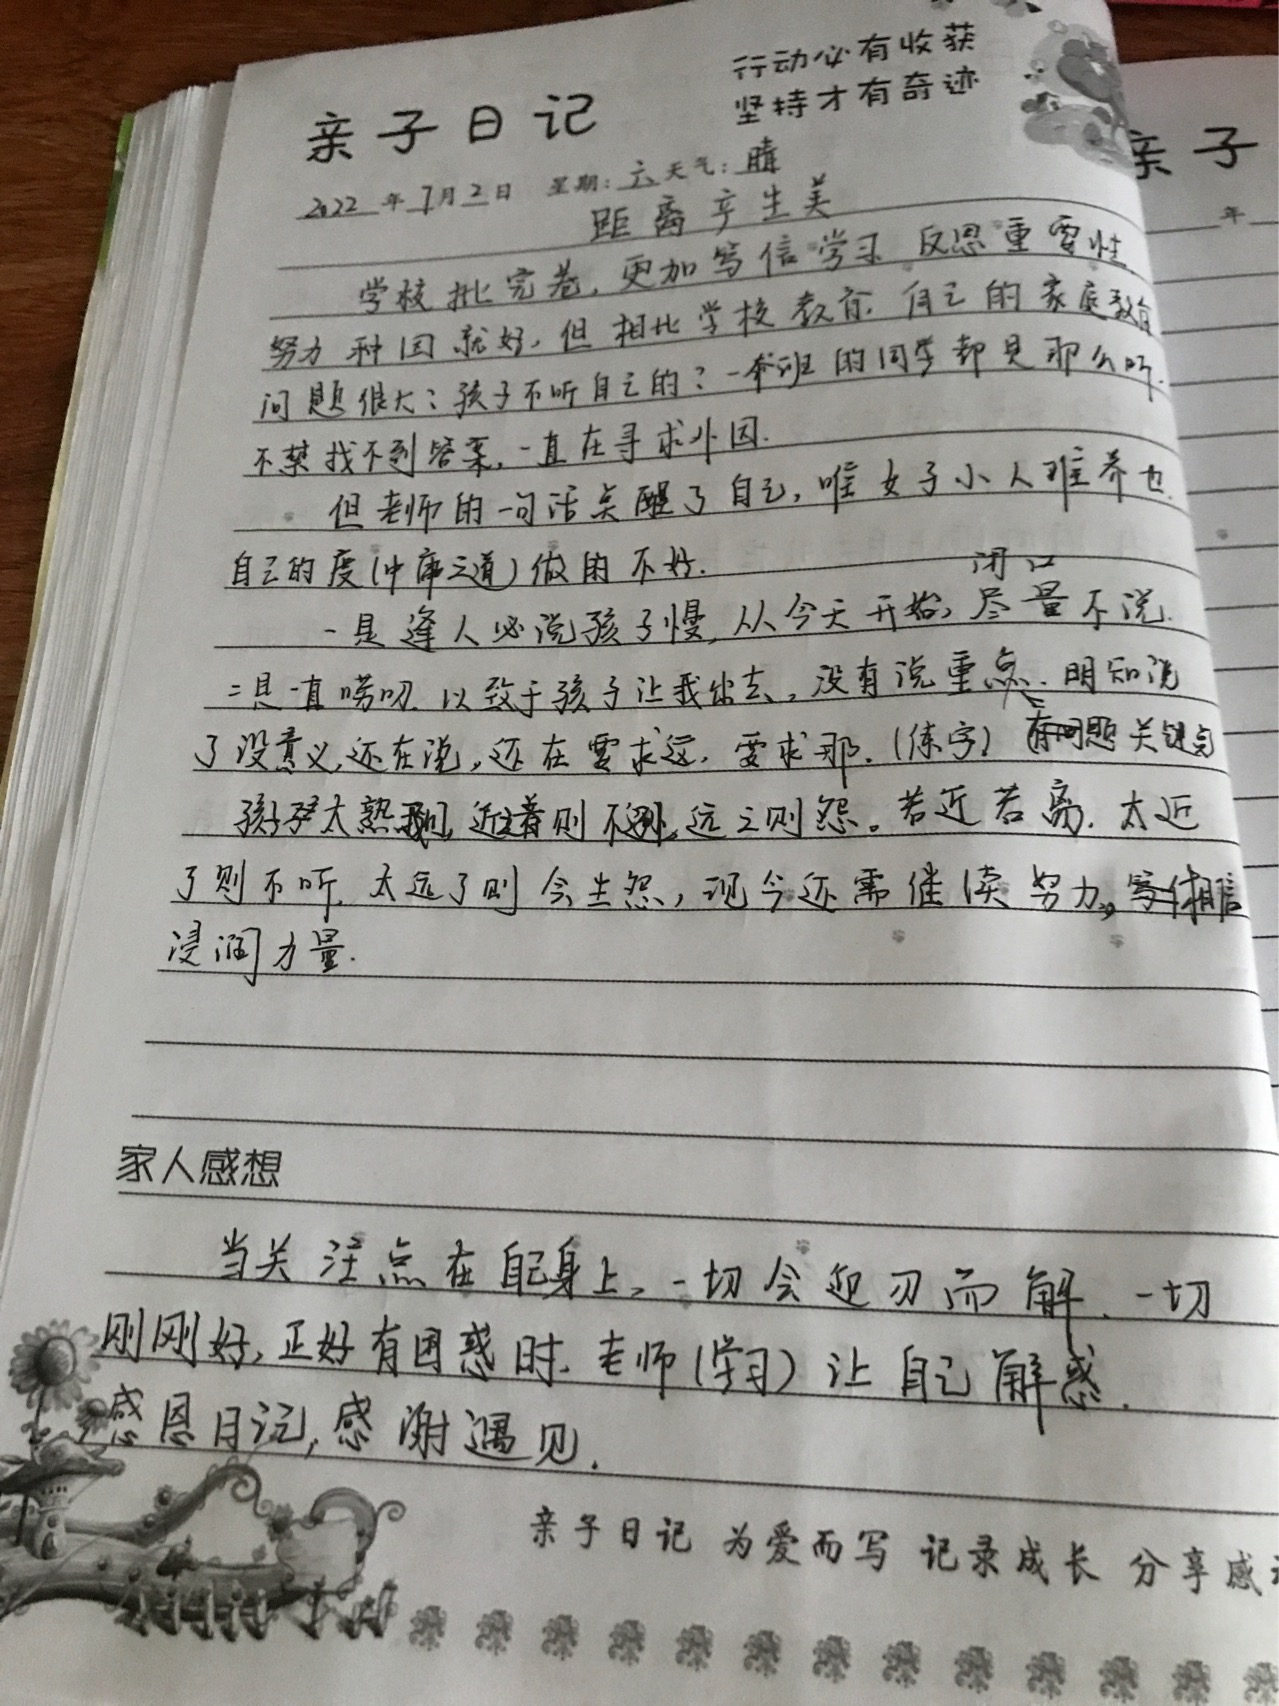 行动必有收获
坚持才有奇迹
亲子日记
亲子
2022年7月2日 星期:六 天气:晴
年
距离产生美
学校批完卷,更加笃信学习 反思重要性
努力种因就好,但相比学校教育,自己的家庭教育
问题很大:孩子不听自己的?一个班的同学都是那么听.
不禁找不到答案,一直在寻求外因.
但老师的一句话点醒了自己,唯女子小人难养也.
自己的度(中庸之道)做的不好.
闭口
一是逢人必说孩子慢,从今天开始,尽量不说.
二是一直唠叨,以致于孩子让我出去。没有说重点.明知说
了没意义,还在说,还在要求远,要求那.(练字) 有问题关键点
孩子太熟 近 则不逊,远之则怨。若近若离.太近
了则不听,太远了则会生怨,现今还需继续努力,相信
浸润力量.
家人感想
当关注点在自己身上,一切会迎刃而解,一切
刚刚好,正好有困惑时.老师(学习)让自己解惑.
感恩日记,感谢遇见.
亲子日记 为爱而写 记录成长 分享感